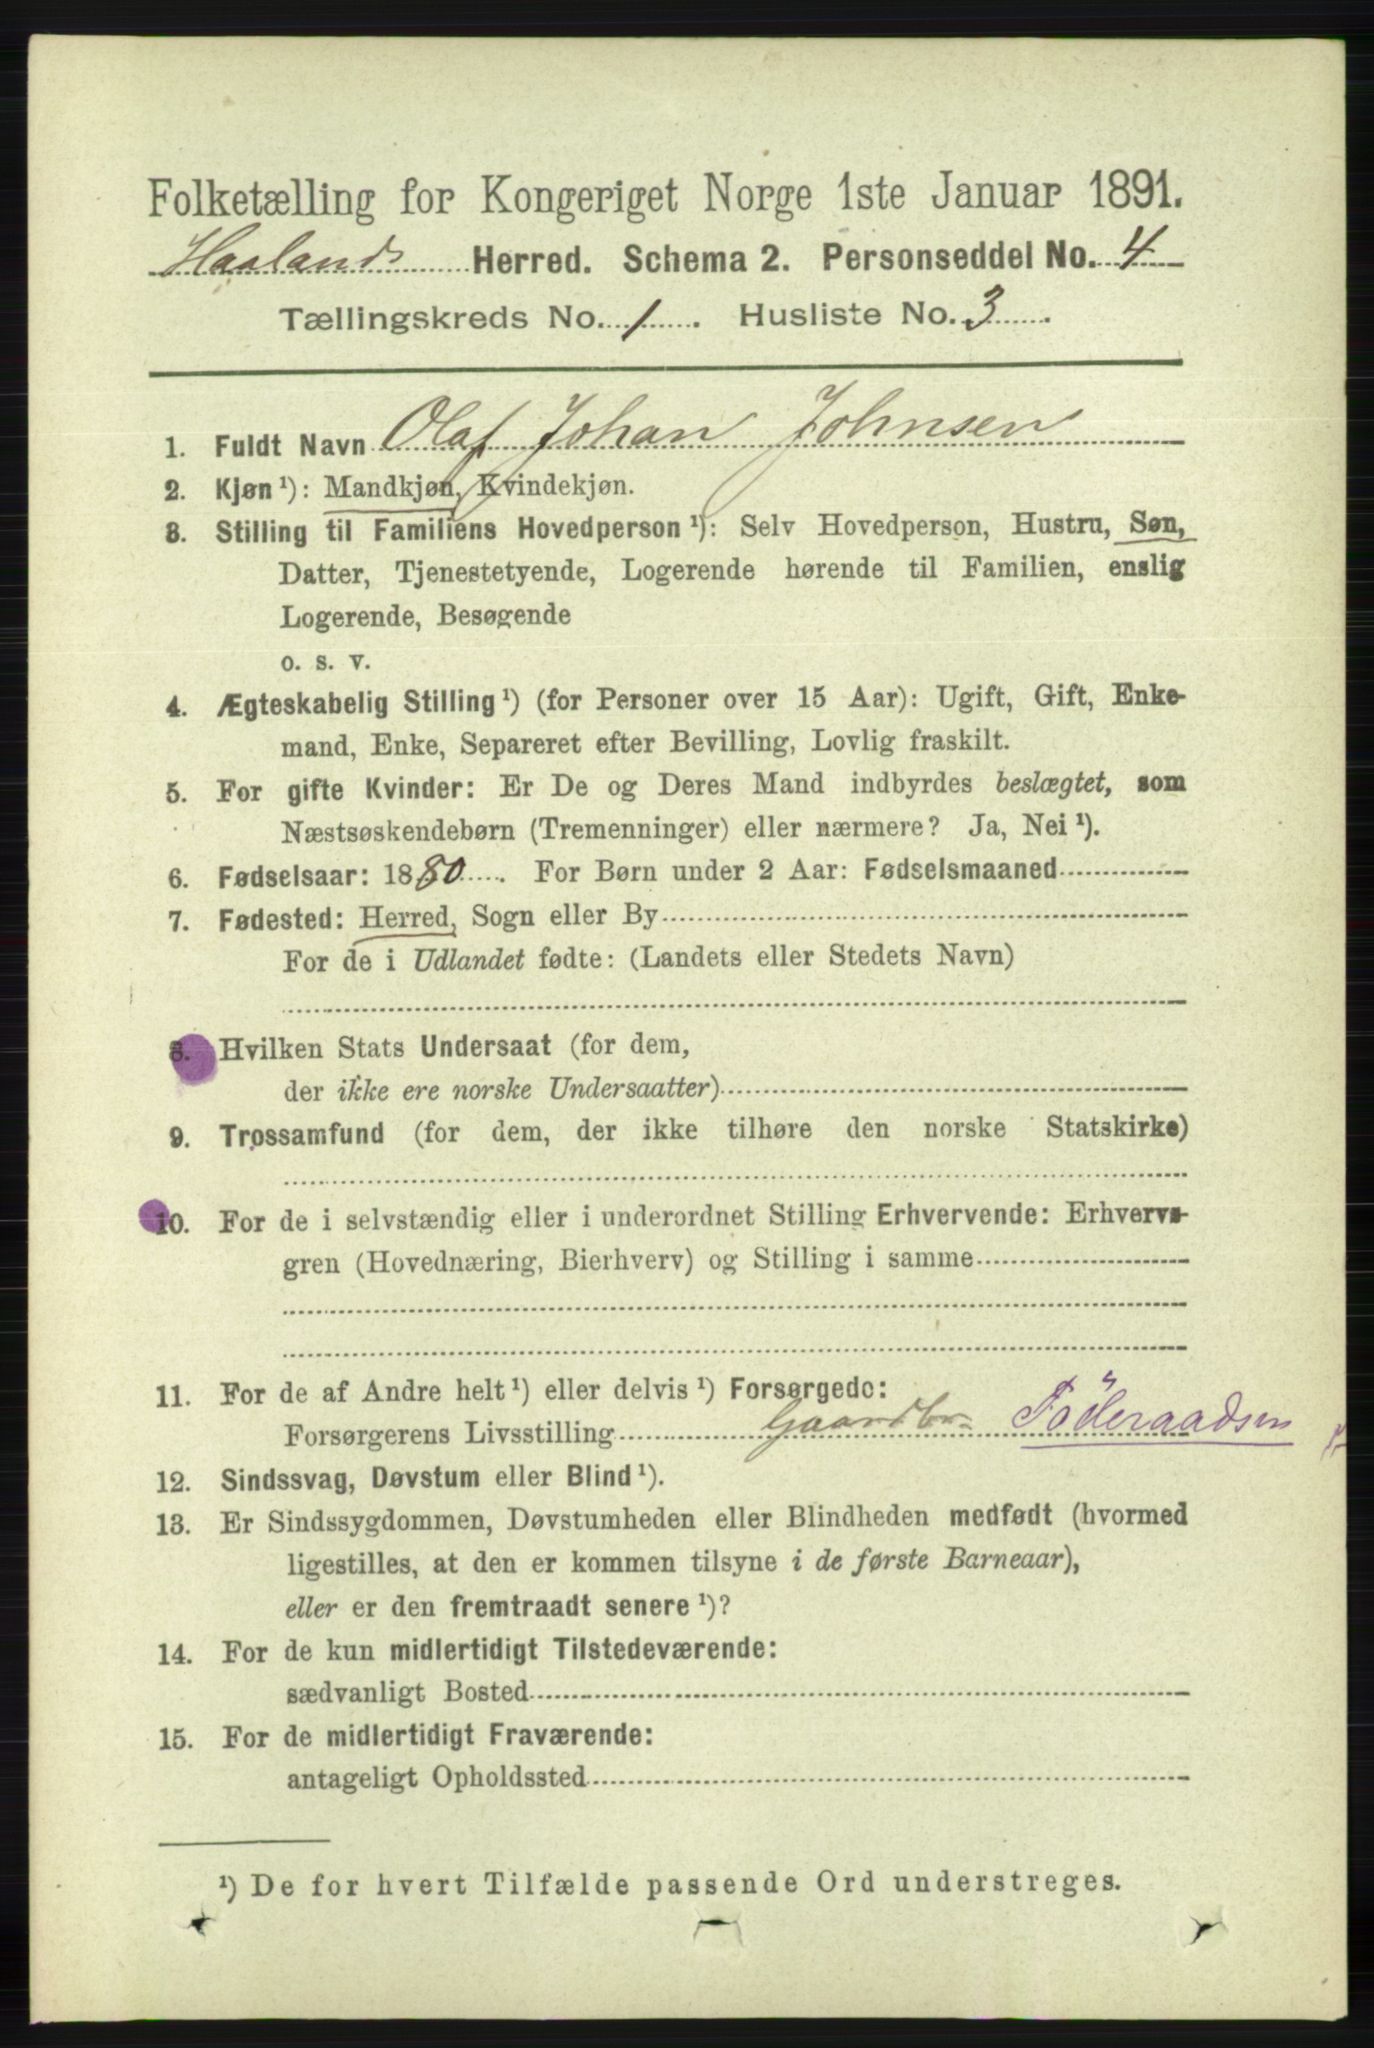 Folketælling for Kongeriget Norge 1ste Januar 1891.
Haalands Herred. Schema 2. Personseddel No. 4
Tællingskreds No. 1. Husliste No. 3.
1. Fuldt Navn Olaf Johan Johnsen
2. Kjøn ¹): Mandkjøn, Kvindekjøn.
3. Stilling til Familiens Hovedperson ¹): Selv Hovedperson, Hustru, Søn,
Datter, Tjenestetyende, Logerende hørende til Familien, enslig
Logerende, Besøgende
o. s. v.
4. Ægteskabelig Stilling ¹) (for Personer over 15 Aar): Ugift, Gift, Enke-
mand, Enke, Separeret efter Bevilling, Lovlig fraskilt.
5. For gifte Kvinder: Er De og Deres Mand indbyrdes beslægtet, som
Næstsøskendebørn (Tremenninger) eller nærmere? Ja, Nei ¹).
6. Fødselsaar: 1880. For Børn under 2 Aar: Fødselsmaaned
7. Fødested: Herred, Sogn eller By
For de i Udlandet fødte: (Landets eller Stedets Navn)
8. Hvilken Stats Undersaat (for dem,
der ikke ere norske Undersaatter)
9. Trossamfund (for dem, der ikke tilhøre den norske Statskirke)
10. For de i selvstændig eller i underordnet Stilling Erhvervende: Erhvervs-
gren (Hovednæring, Bierhverv) og Stilling i samme
11. For de af Andre helt ¹) eller delvis ¹) Forsørgede:
Forsørgerens Livsstilling Gaardbr. Föderaadsm
12. Sindssvag, Døvstum eller Blind ¹).
13. Er Sindssygdommen, Døvstumheden eller Blindheden medfødt (hvormed
ligestilles, at den er kommen tilsyne i de første Barneaar),
eller er den fremtraadt senere ¹)?
14. For de kun midlertidigt Tilstedeværende:
sædvanligt Bosted
15. For de midlertidigt Fraværende:
antageligt Opholdssted
¹) De for hvert Tilfælde passende Ord understreges.